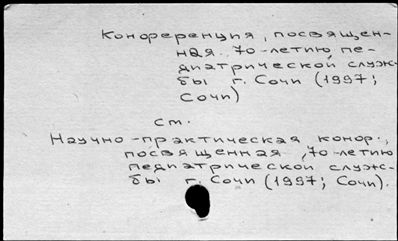 Конференция, посвящен-
ная 70-летию пе-
диатрической служ-
бы г. Сочи (1997;
Сочи)
см.
Научно-практическая конф.,
посвященная 70-летию
педиатрической служ-
бы г. Сочи (1997; Сочи).